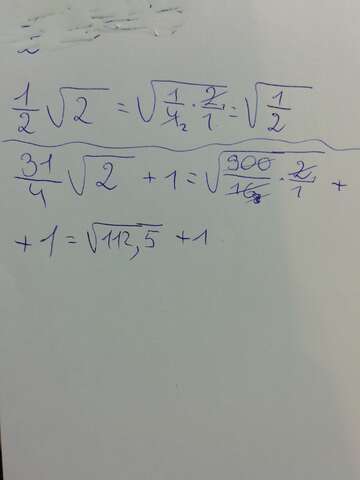 1/2 √2 = √(1/4 · 2/1) = √(1/2)
31/4 √2 + 1 = √(900/16 · 2/1) +
+ 1 = √112,5 + 1